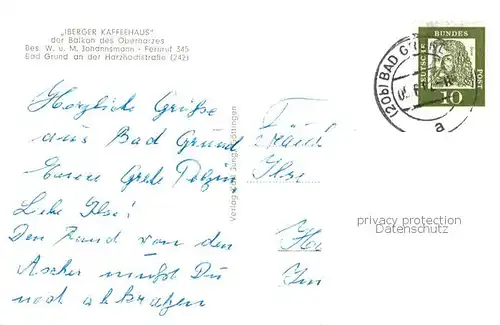 „IBERGER KAFFEEHAUS"
der Balkon des Oberharzes
Bes. W. u. M. Johannsmann - Fernruf 345
Bad Grund an der Harzhochstraße (242)
Herzliche Grüße
aus Bad Grund
Grete
Liebe Ilse!
Den Rand von den
Ascher mußt Du
noch abkratzen
Verlag
Göttingen
Fräul
Ilse
Ha
Im
(20b) BAD GRUND
a
DEUTSCHE
BUNDES
POST
10
privacy protection
Datenschutz